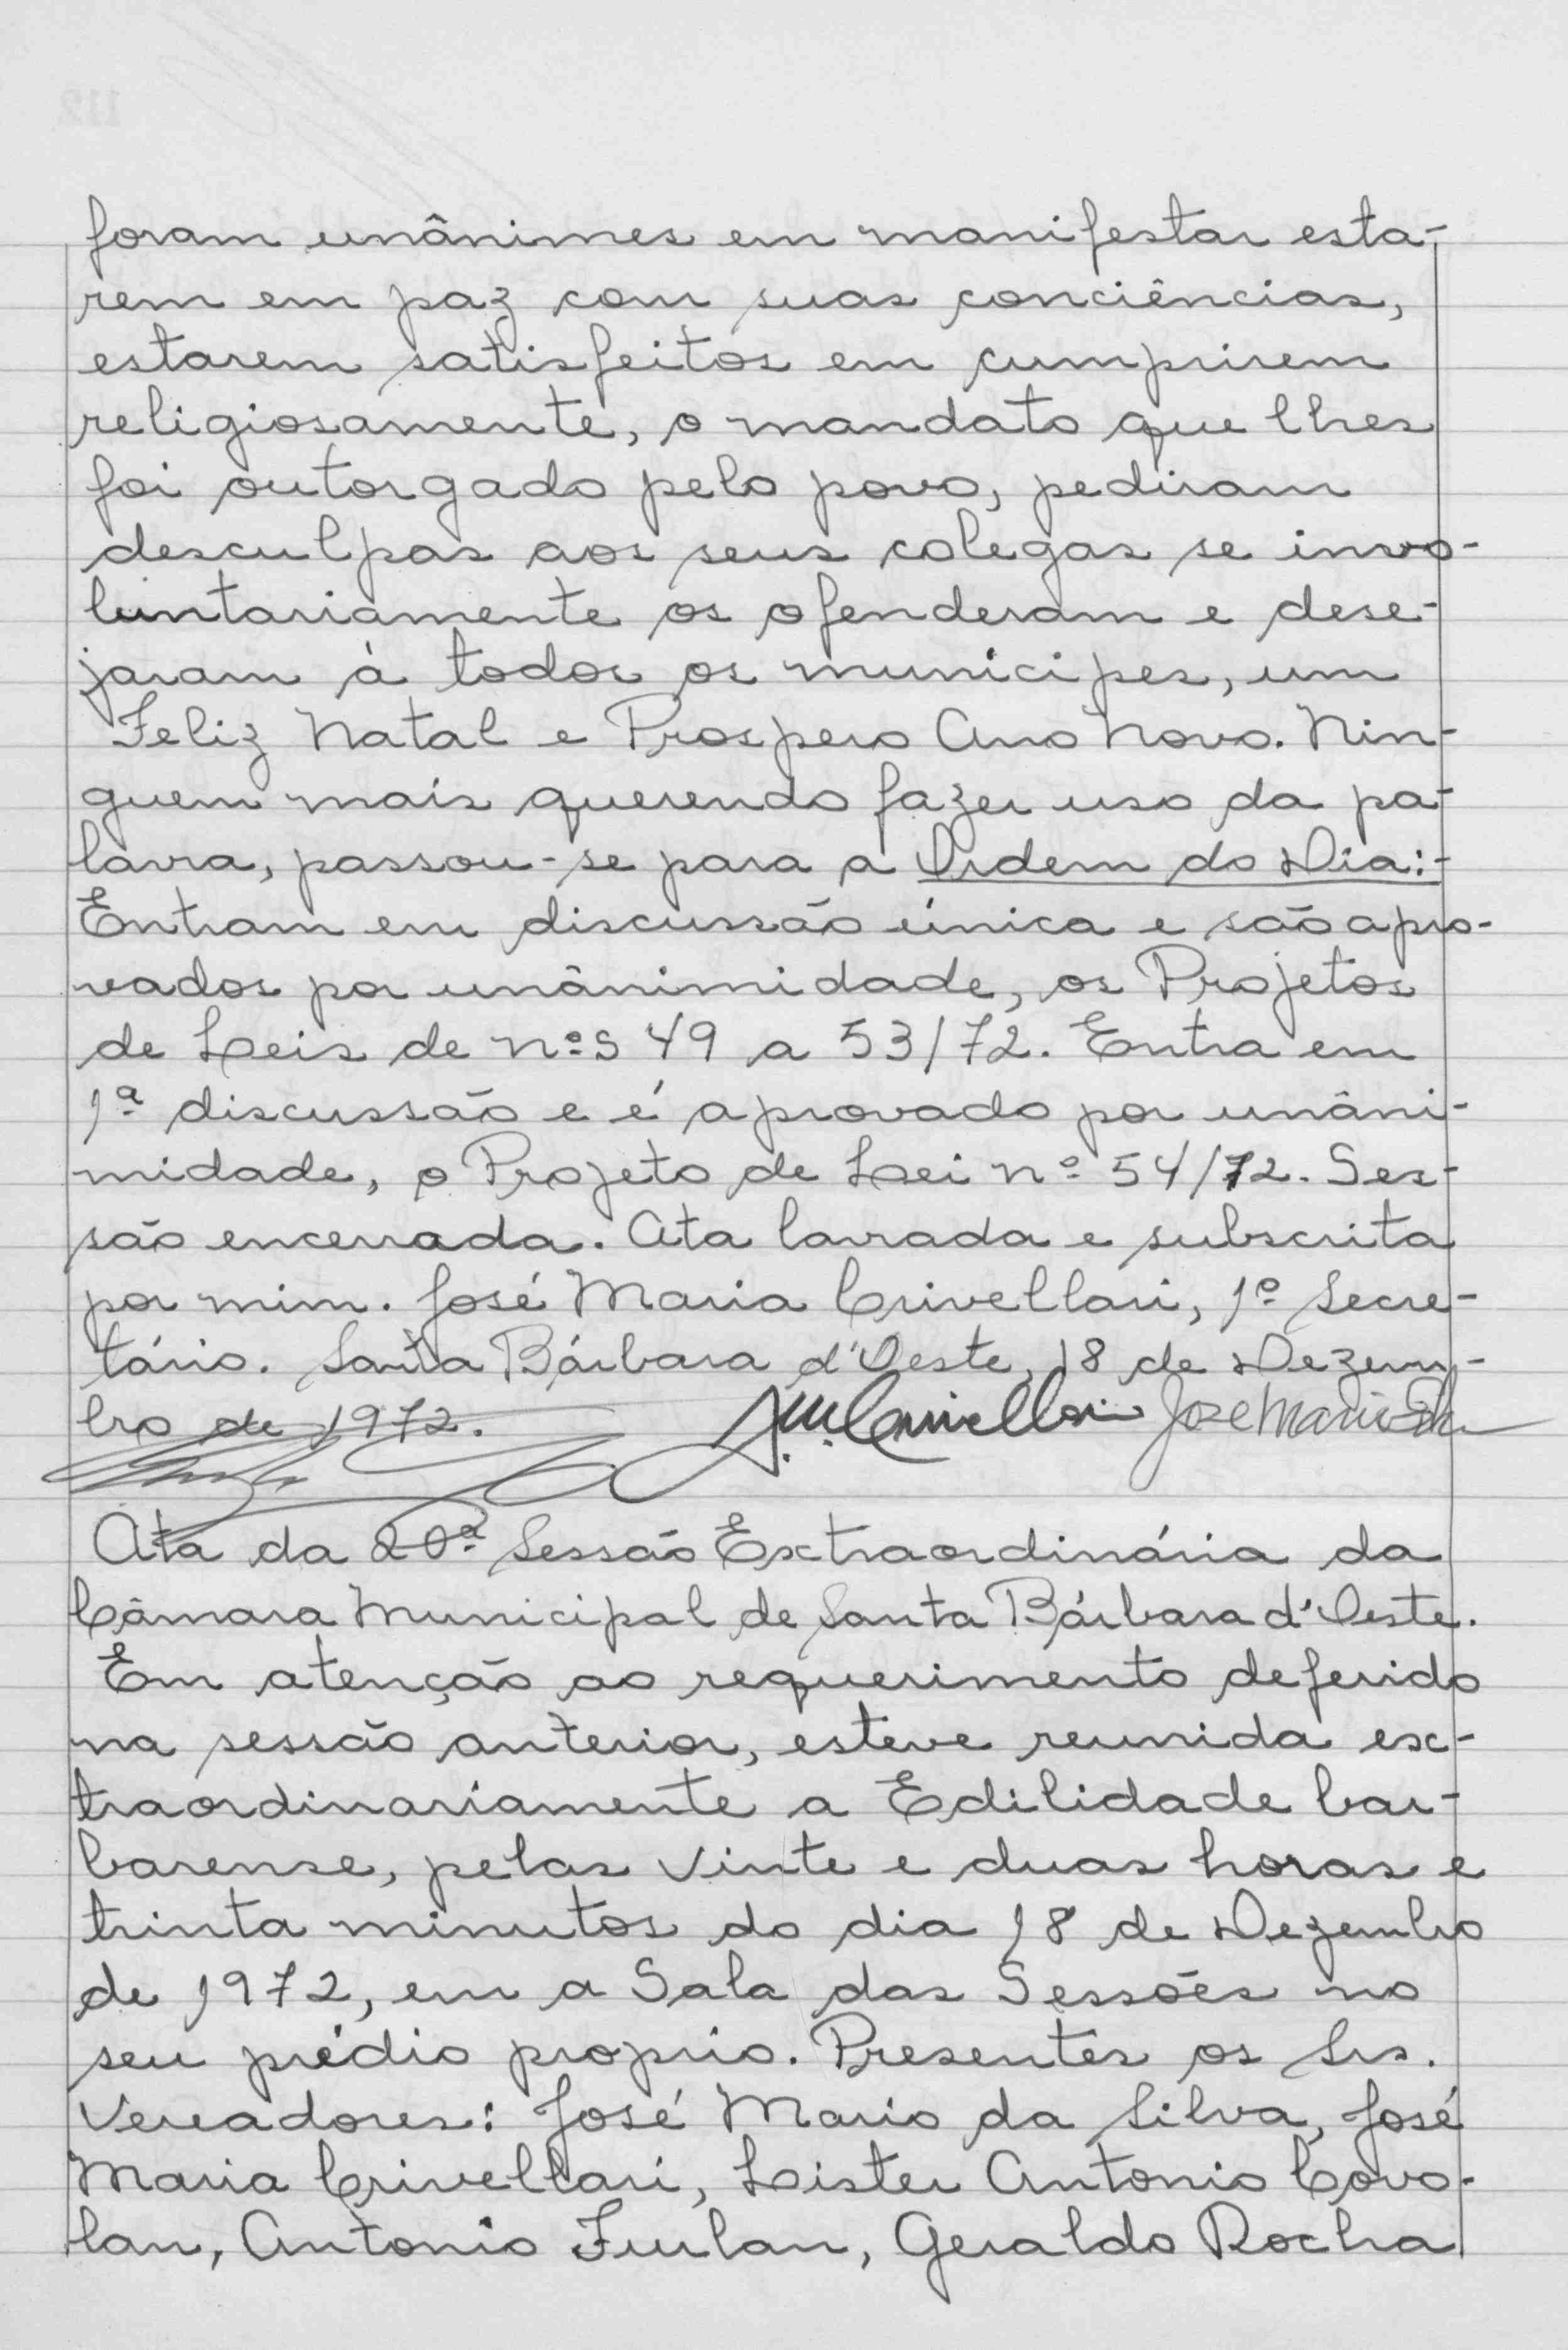 foram unânimes em manifestar esta-
rem em paz com suas conciências,
estarem satisfeitos em cumprirem
religiosamente, o mandato que lhes
foi outorgado pelo povo, pediram
desculpas aos seus colegas se invo-
luntariamente os ofenderam e dese-
jaram à todos os municipes, um
Feliz Natal e Prospero Ano Novo. Nin-
guem mais querendo fazer uso da pa-
lavra, passou-se para a Ordem do Dia:-
Entram em discussão única e são apro-
vados por unânimidade, os Projetos
de Leis de nºs 49 a 53/72. Entra em
1ª discussão e é aprovado por unâni-
midade, o Projeto de Lei nº 54/72. Ses-
são encerrada. Ata lavrada e subscrita
por mim. José Maria Crivellari, 1º Secre-
tário. Santa Bárbara d'Oeste, 18 de Dezem-
bro de 1972. J.M.Crivellari José Mario
Ata da 20ª Sessão Extraordinária da
Câmara Municipal de Santa Bárbara d'Oeste.
Em atenção ao requerimento deferido
na sessão anterior, esteve reunida ex-
traordinariamente a Edilidade bar-
barense, pelas vinte e duas horas e
trinta minutos do dia 18 de Dezembro
de 1972, em a Sala das Sessões no
seu prédio proprio. Presentes os Srs.
Vereadores: José Mario da Silva, José
Maria Crivellari, Lister Antonio Covo-
lan, Antonio Furlan, Geraldo Rocha